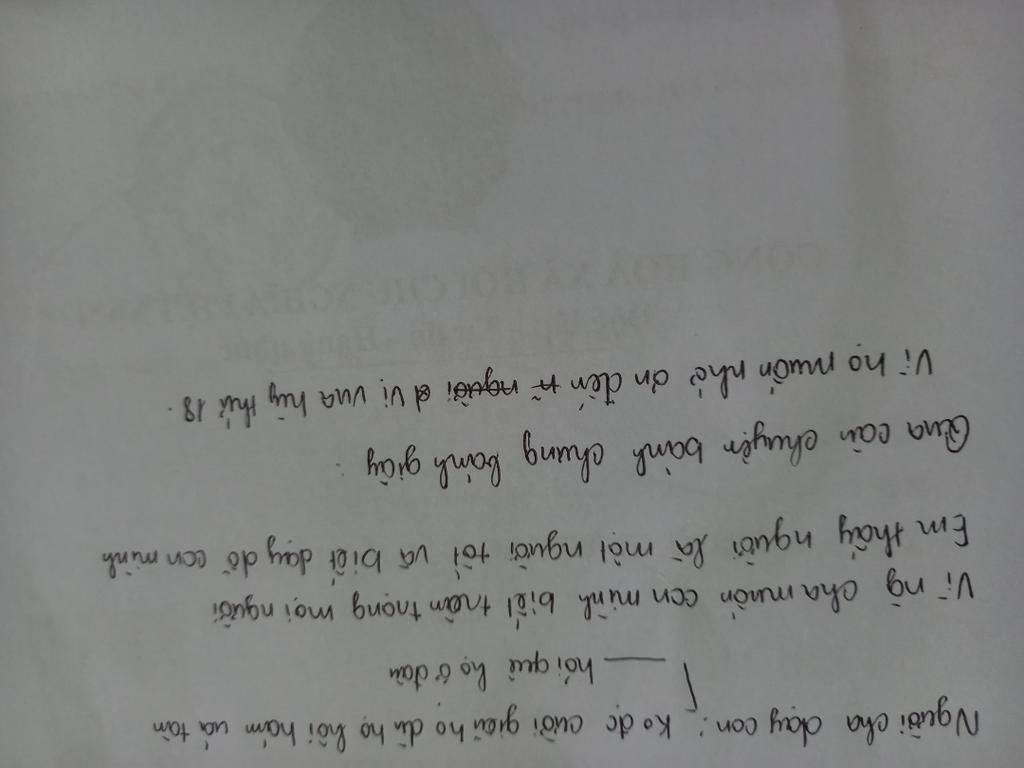 Người cha dạy con: Ko đc cười giễu họ dù họ hôi hám và tàn
hỏi quê họ ở đâu
Vì ng cha muốn con mình biết trân trọng mọi người
Em thấy người là một người tốt và biết dạy dỗ con mình
Qua câu chuyện bánh chưng bánh giầy:
Vì họ muốn nhớ ơn đến người vị vua hùng thứ 18.
CỘNG HOÀ XÃ HỘI CHỦ NGHĨA VIỆT NAM
Độc lập - Tự do - Hạnh phúc